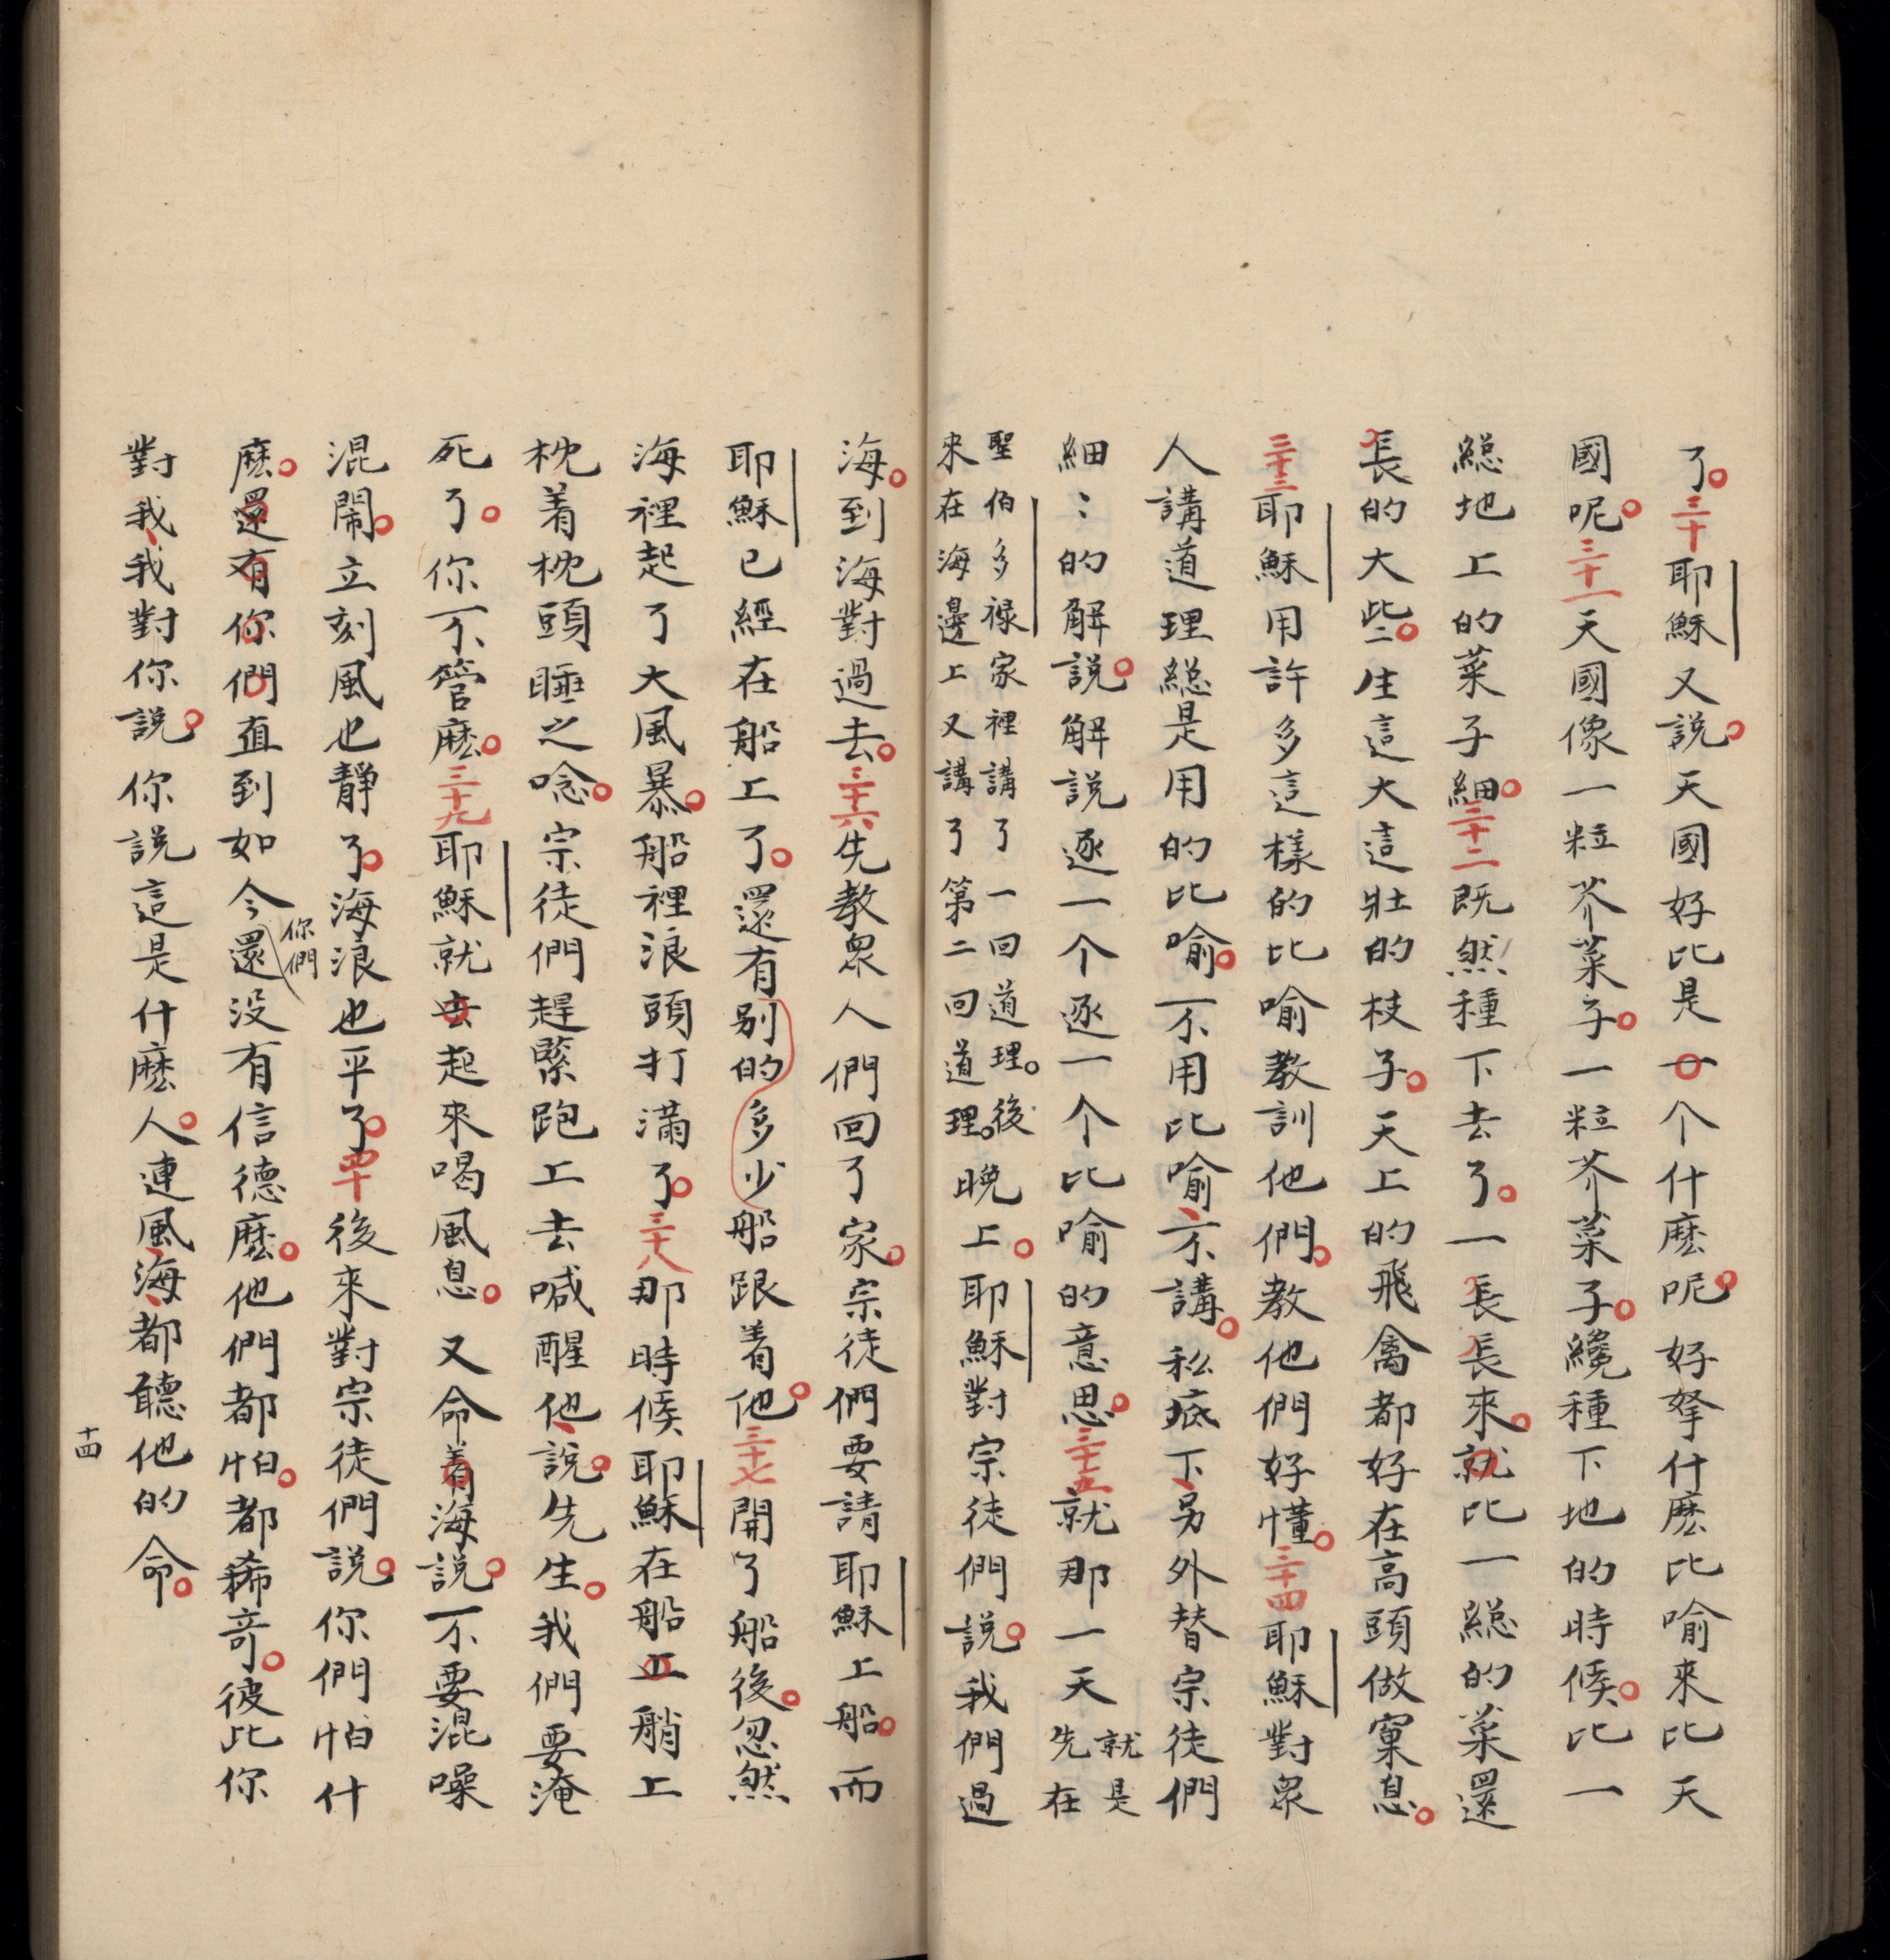 了三十耶穌又說天國好比是一个什麽呢好拏什麽比喻來比天
國呢三十一天國像一粒芥菜子一粒芥菜子纔種下地的時候比一
總地上的菜子細三十二既然種下去了一長長來就比一總的菜還
長的大些生這大這壯的枝子天上的飛禽都好在高頭做窠息
三十三耶穌用許多這樣的比喻教訓他們教他們好懂三十四耶穌對衆
人講道理總是用的比喻不用比喻不講私底下另外替宗徒們
細〻的解說解說逐一个逐一个比喻的意思三十五就那一天
就是
先在
聖伯多祿家裡講了一回道理後
來在海邊上又講了第二回道理
晚上耶穌對宗徒們說我們過
海到海對過去三十六先教衆人們回了家宗徒們要請耶穌上船而
耶穌已經在船上了還有别的多少船跟着他三十七開了船後忽然
海裡起了大風暴船裡浪頭打滿了三十八那時候耶穌在船上艄上
枕着枕頭睡之唸宗徒們趕緊跑上去喊醒他說先生我們要淹
死了你不管麽三十九耶穌就去起來喝風息又命着海說不要混噪
混鬧立刻風也靜了海浪也平了四十後來對宗徒們說你們怕什
麽還有你們直到如今還没有信德麽他們都怕都稀奇彼比你
你們
對我我對你說你說這是什麽人連風海都聽他的命
十四